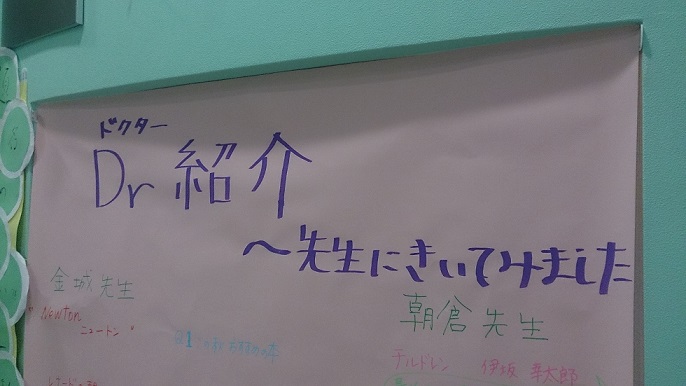 ドクター
Dr 紹介
～先生にきいてみました
金城 先生
"NEWTON
ニュートン"
朝倉 先生
チルドレン 伊坂 幸太郎